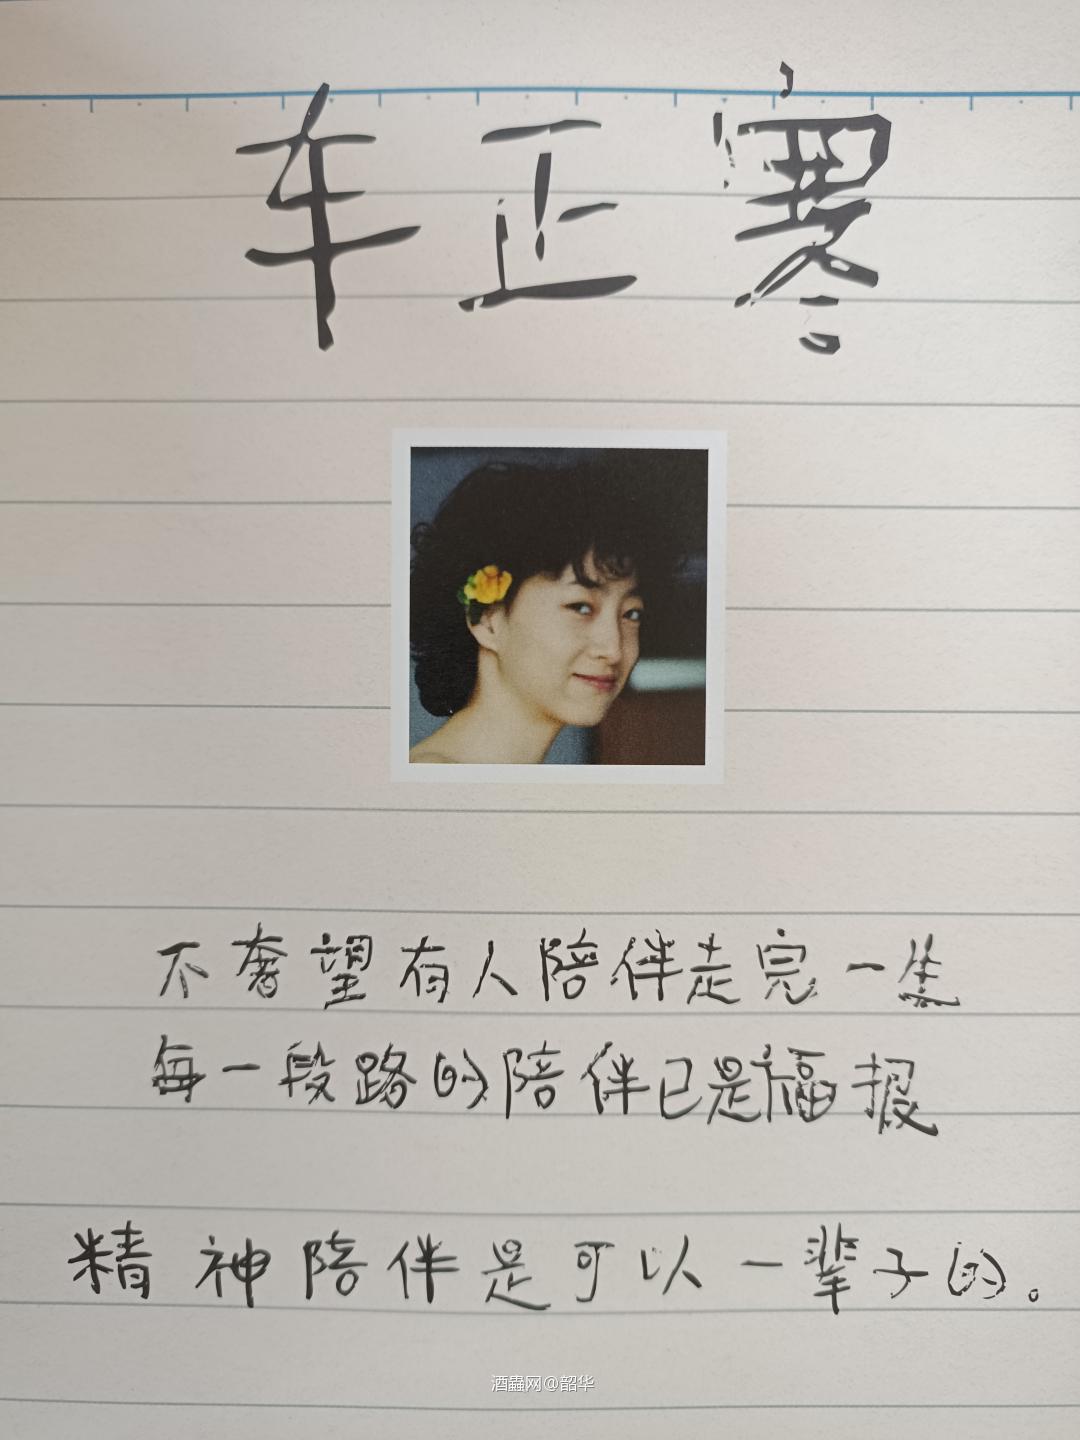 车正寒
不奢望有人陪伴走完一生
每一段路的陪伴已是福报
精神陪伴是可以一辈子的。
酒蟲网@韶华